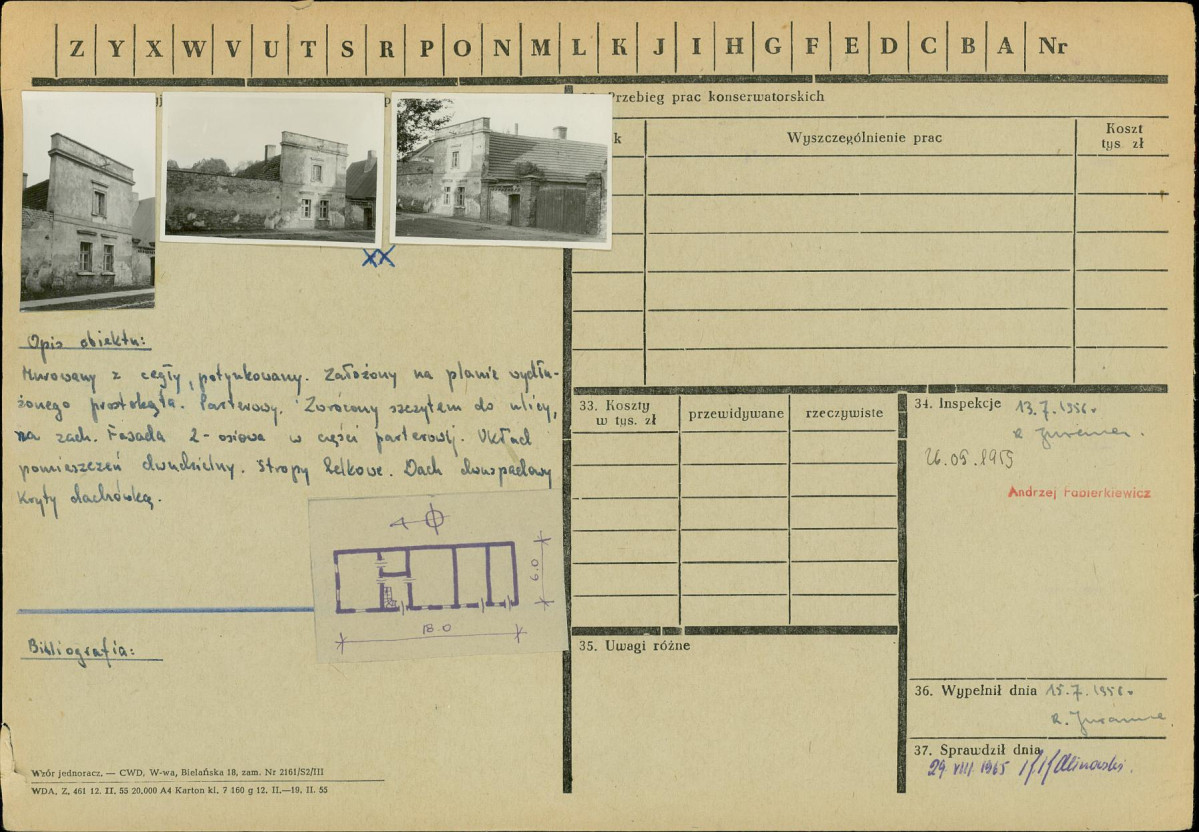 Z Y X W V U T S R P O N M L K J I H G F E D C B A Nr
Przebieg prac konserwatorskich
k
Wyszczególnienie prac
Koszt
tys. zł
XX
Opis obiektu:
Murowany z cegły, potynkowany. Założony na planie wydłu-
żonego prostokąta. Parterowy. Zwrócony szczytem do ulicy,
na zach. Fasada 2-osiowa w części parterowej. Układ
pomieszczeń dwudzielny. Stropy belkowe. Dach dwuspadowy
kryty dachówką.
6.0
18.0
Bibliografia:
33. Koszty
w tys. zł
przewidywane
rzeczywiste
34. Inspekcje
13.7.1956.
26.09.1959
Andrzej Fabierkiewicz
35. Uwagi różne
36. Wypełnił dnia 15.7.1956.
37. Sprawdził dnia
29 VIII 1965
Wzór jednoracz. — CWD, W-wa, Bielańska 18, zam. Nr 2161/S2/III
WDA. Z. 461 12. II. 55 20.000 A4 Karton kl. 7 160 g 12. II.—19. II. 55